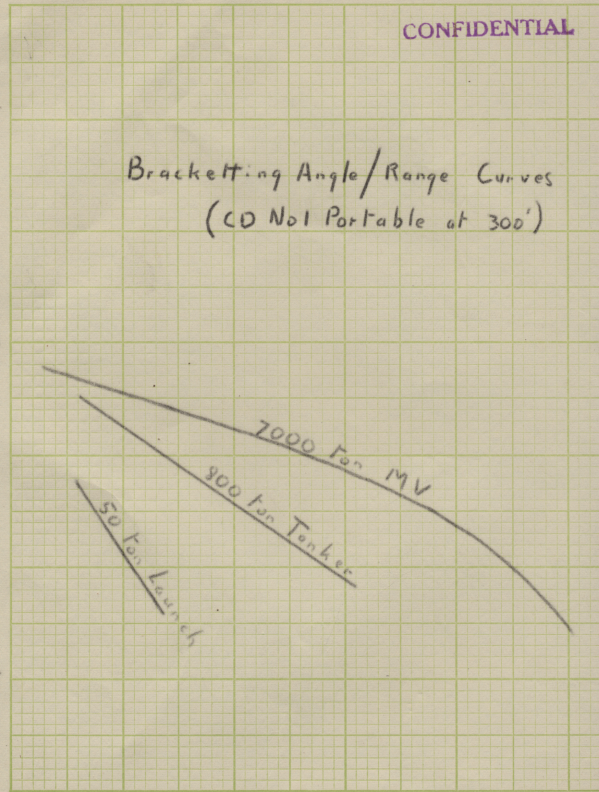 CONFIDENTIAL
Bracketting Angle/Range Curves
(CD No1 Portable at 300')
7000 ton MV
800 ton Tanker
50 ton Launch